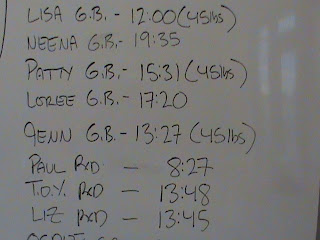 LISA G.B. - 12:00 (45lbs)
NEENA G.B. - 19:35
PATTY G.B. - 15:31 (45lbs)
LOREE G.B. - 17:20
JENN G.B. - 13:27 (45lbs)
PAUL RXD - 8:27
T.O.Y. RXD - 13:48
LIZ RXD - 13:45